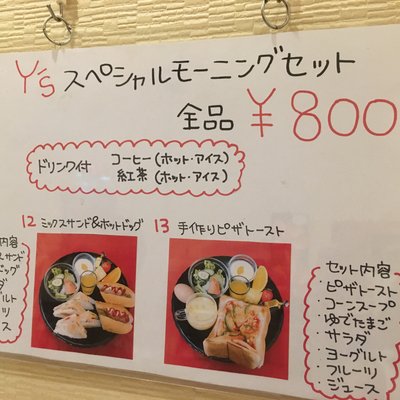 Y's スペシャルモーニングセット
全品 ¥800
ドリンク付 コーヒー(ホット・アイス)
紅茶(ホット・アイス)
12 ミックスサンド&ホットドッグ
13 手作りピザトースト
内容
サンド
ドッグ
ダ
ルト
ツ
ス
セット内容
・ピザトースト
・コーンスープ
・ゆでたまご
・サラダ
・ヨーグルト
・フルーツ
・ジュース